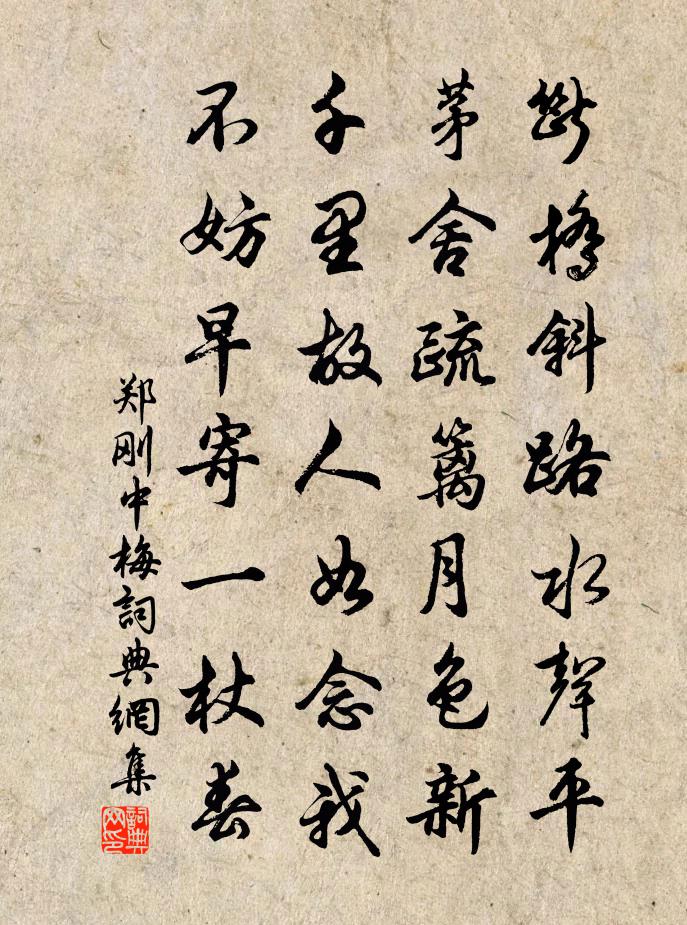 斷橋斜路水聲平
茅舍疏籬月色新
千里故人如念我
不妨早寄一枝春
郑刚中梅詞典網集
詞典网印